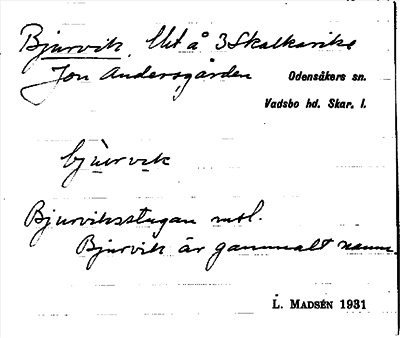 Bjurvik, Utt å 3 Skalkarike
Jon Andersgården Odensåkers sn.
Vadsbo hd. Skar. l.
bju̱rvi̱k
Bjurviksstugan nsl.
Bjurvik är gammalt namn.
L. MADSÉN 1931